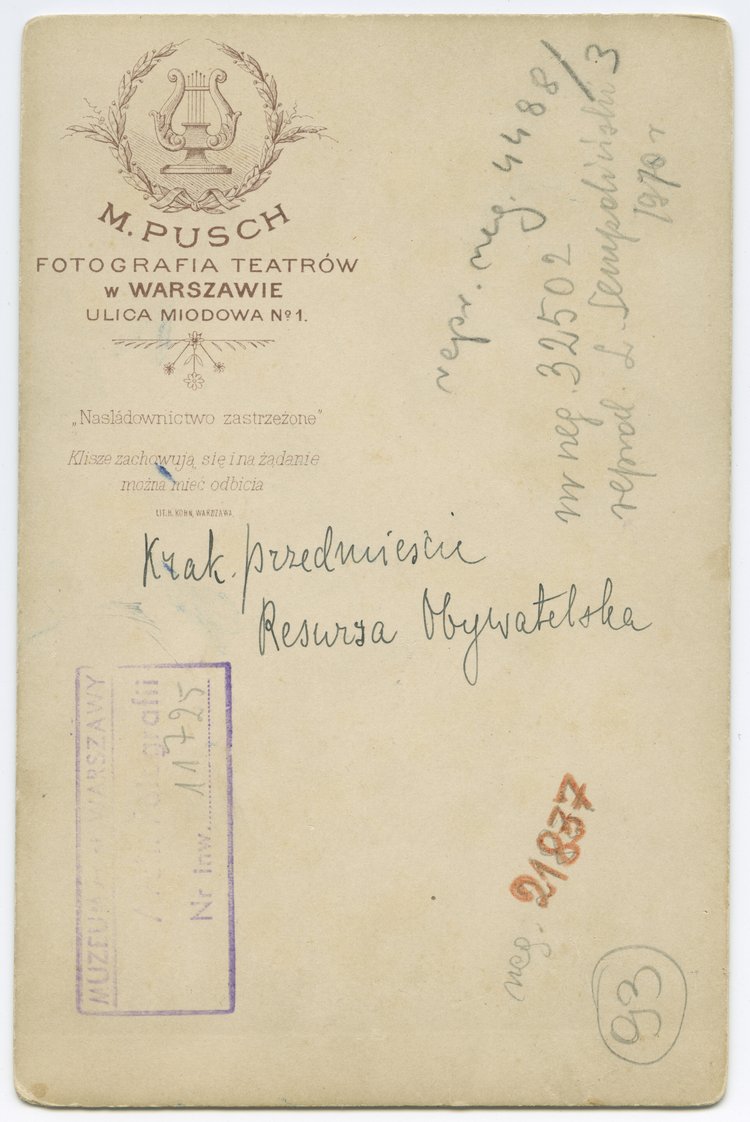 M. PUSCH
FOTOGRAFIA TEATRÓW
w WARSZAWIE
ULICA MIODOWA Nº 1.
„Nasládownictwo zastrzeżone"
Klisze zachowują się i na żądanie
można mieć odbicia
LIT. H. KOHN, WARSZAWA.
repr. neg. 4488/3
nr neg. 32502
reprod. L. Sempoliński
1970 r
Krak. przedmieście
Resursa Obywatelska
MUZEUM WARSZAWY
Nr inw. 11725
neg. 21837
93